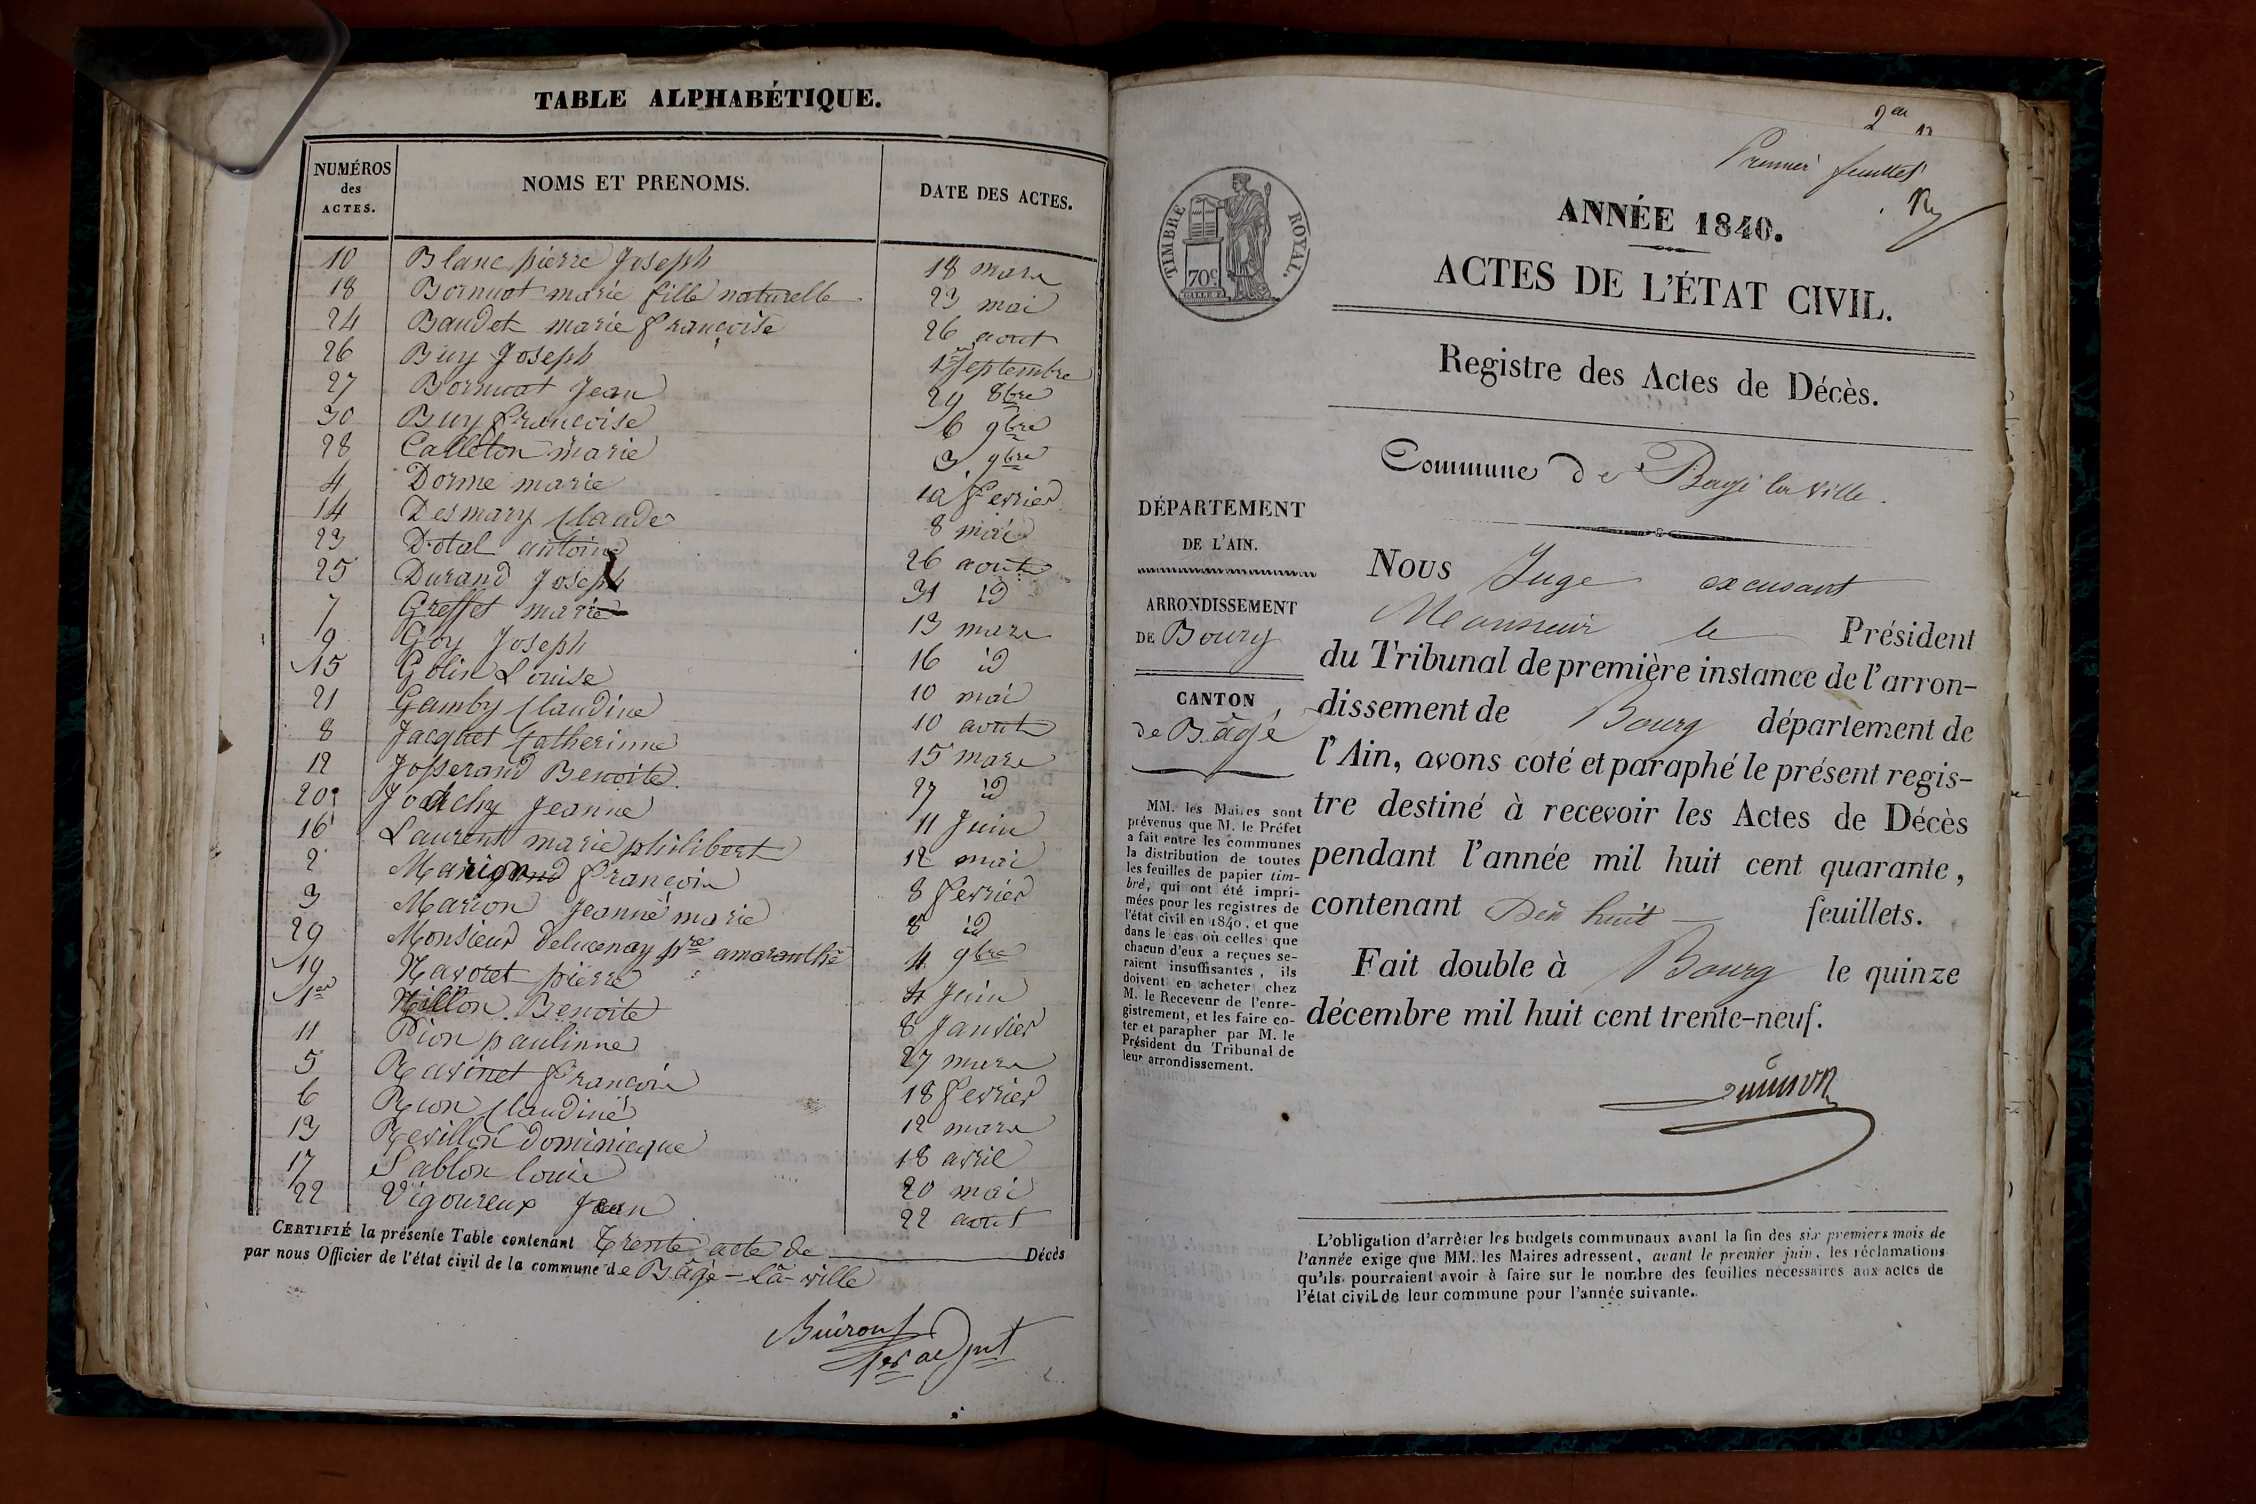 TABLE ALPHABÉTIQUE.
NUMÉROS des ACTES. NOMS ET PRENOMS. DATE DES ACTES.
10 Blanc pierre Joseph 18 mars
18 Bornuat marie fille naturelle 23 mai
24 Baudet marie françoise 26 aout
26 Buy Joseph 1er septembre
27 Bornuat Jean 29 8bre
30 Buy françoise 6 9bre
28 Calleton marie 3 9bre
4 Dorme marie 12 fevrier
14 Desmary Claude 8 mai
23 Dotal antoine 26 aout
25 Durand Joseph 31 id
7 Greffet marie 13 mars
9 Goy Joseph 16 id
15 Golin Louise 10 mai
21 Gamby Claudine 10 aout
8 Jacquet Catherinne 15 mars
12 Josserand Benoite 27 id
20 Jeanne 11 Juin
16 Laurent marie philibert 12 mai
2 françois 8 fevrier
3 Marion Jeanne marie 8 id
29 Monsieur Delucenay pre amaranthe 4 9bre
19 Navoret pierre 4 Juin
1er Nillon Benoite 8 Janvier
11 Pion paulinne 27 mars
5 Ravinet françois 18 fevrier
6 Rion Claudine 12 mars
13 Revillon dominicque 18 avril
17 Sablon louis 20 mai
22 Vigoureux Jean 22 aout
CERTIFIÉ la présente Table contenant Trente acte de Décès
par nous Officier de l'état civil de la commune de Bâgé-la-ville
Buiront
1er adjnt
2eu
Premier feuillet
TIMBRE ROYAL.
70c
ANNÉE 1840.
ACTES DE L'ÉTAT CIVIL.
Registre des Actes de Décès.
Commune de Bagé la ville.
DÉPARTEMENT
DE L'AIN.
ARRONDISSEMENT
DE Bourg
CANTON
de Bâgé
MM. les Maires sont
prévenus que M. le Préfet
a fait entre les communes
la distribution de toutes
les feuilles de papier tim-
bré, qui ont été impri-
mées pour les registres de
l'état civil en 1840, et que
dans le cas où celles que
chacun d'eux a reçues se-
raient insuffisantes, ils
doivent en acheter chez
M. le Receveur de l'enre-
gistrement, et les faire co-
ter et parapher par M. le
Président du Tribunal de
leur arrondissement.
Nous Juge excusant
Monsieur le Président
du Tribunal de première instance de l'arron-
dissement de Bourg département de
l'Ain, avons coté et paraphé le présent regis-
tre destiné à recevoir les Actes de Décès
pendant l'année mil huit cent quarante,
contenant Dix huit feuillets.
Fait double à Bourg le quinze
décembre mil huit cent trente-neuf.
L'obligation d'arrêter les budgets communaux avant la fin des six premiers mois de
l'année exige que MM. les Maires adressent, avant le premier juin, les réclamations
qu'ils pourraient avoir à faire sur le nombre des feuilles nécessaires aux actes de
l'état civil de leur commune pour l'année suivante.